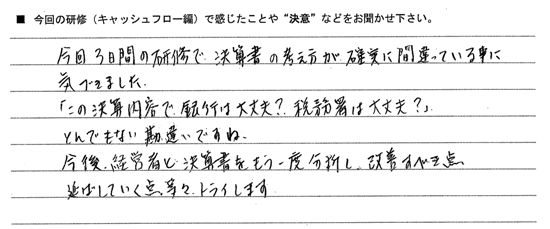 ■ 今回の研修（キャッシュフロー編）で感じたことや“決意”などをお聞かせ下さい。
今回3日間の研修で、決算書の考え方が確実に間違っている事に
気づきました。
「この決算内容で、銀行は大丈夫？税務署は大丈夫？」
とんでもない勘違いですね。
今後、経営者と決算書をもう一度分析し、改善すべき点
延ばしていく点等々、トライします